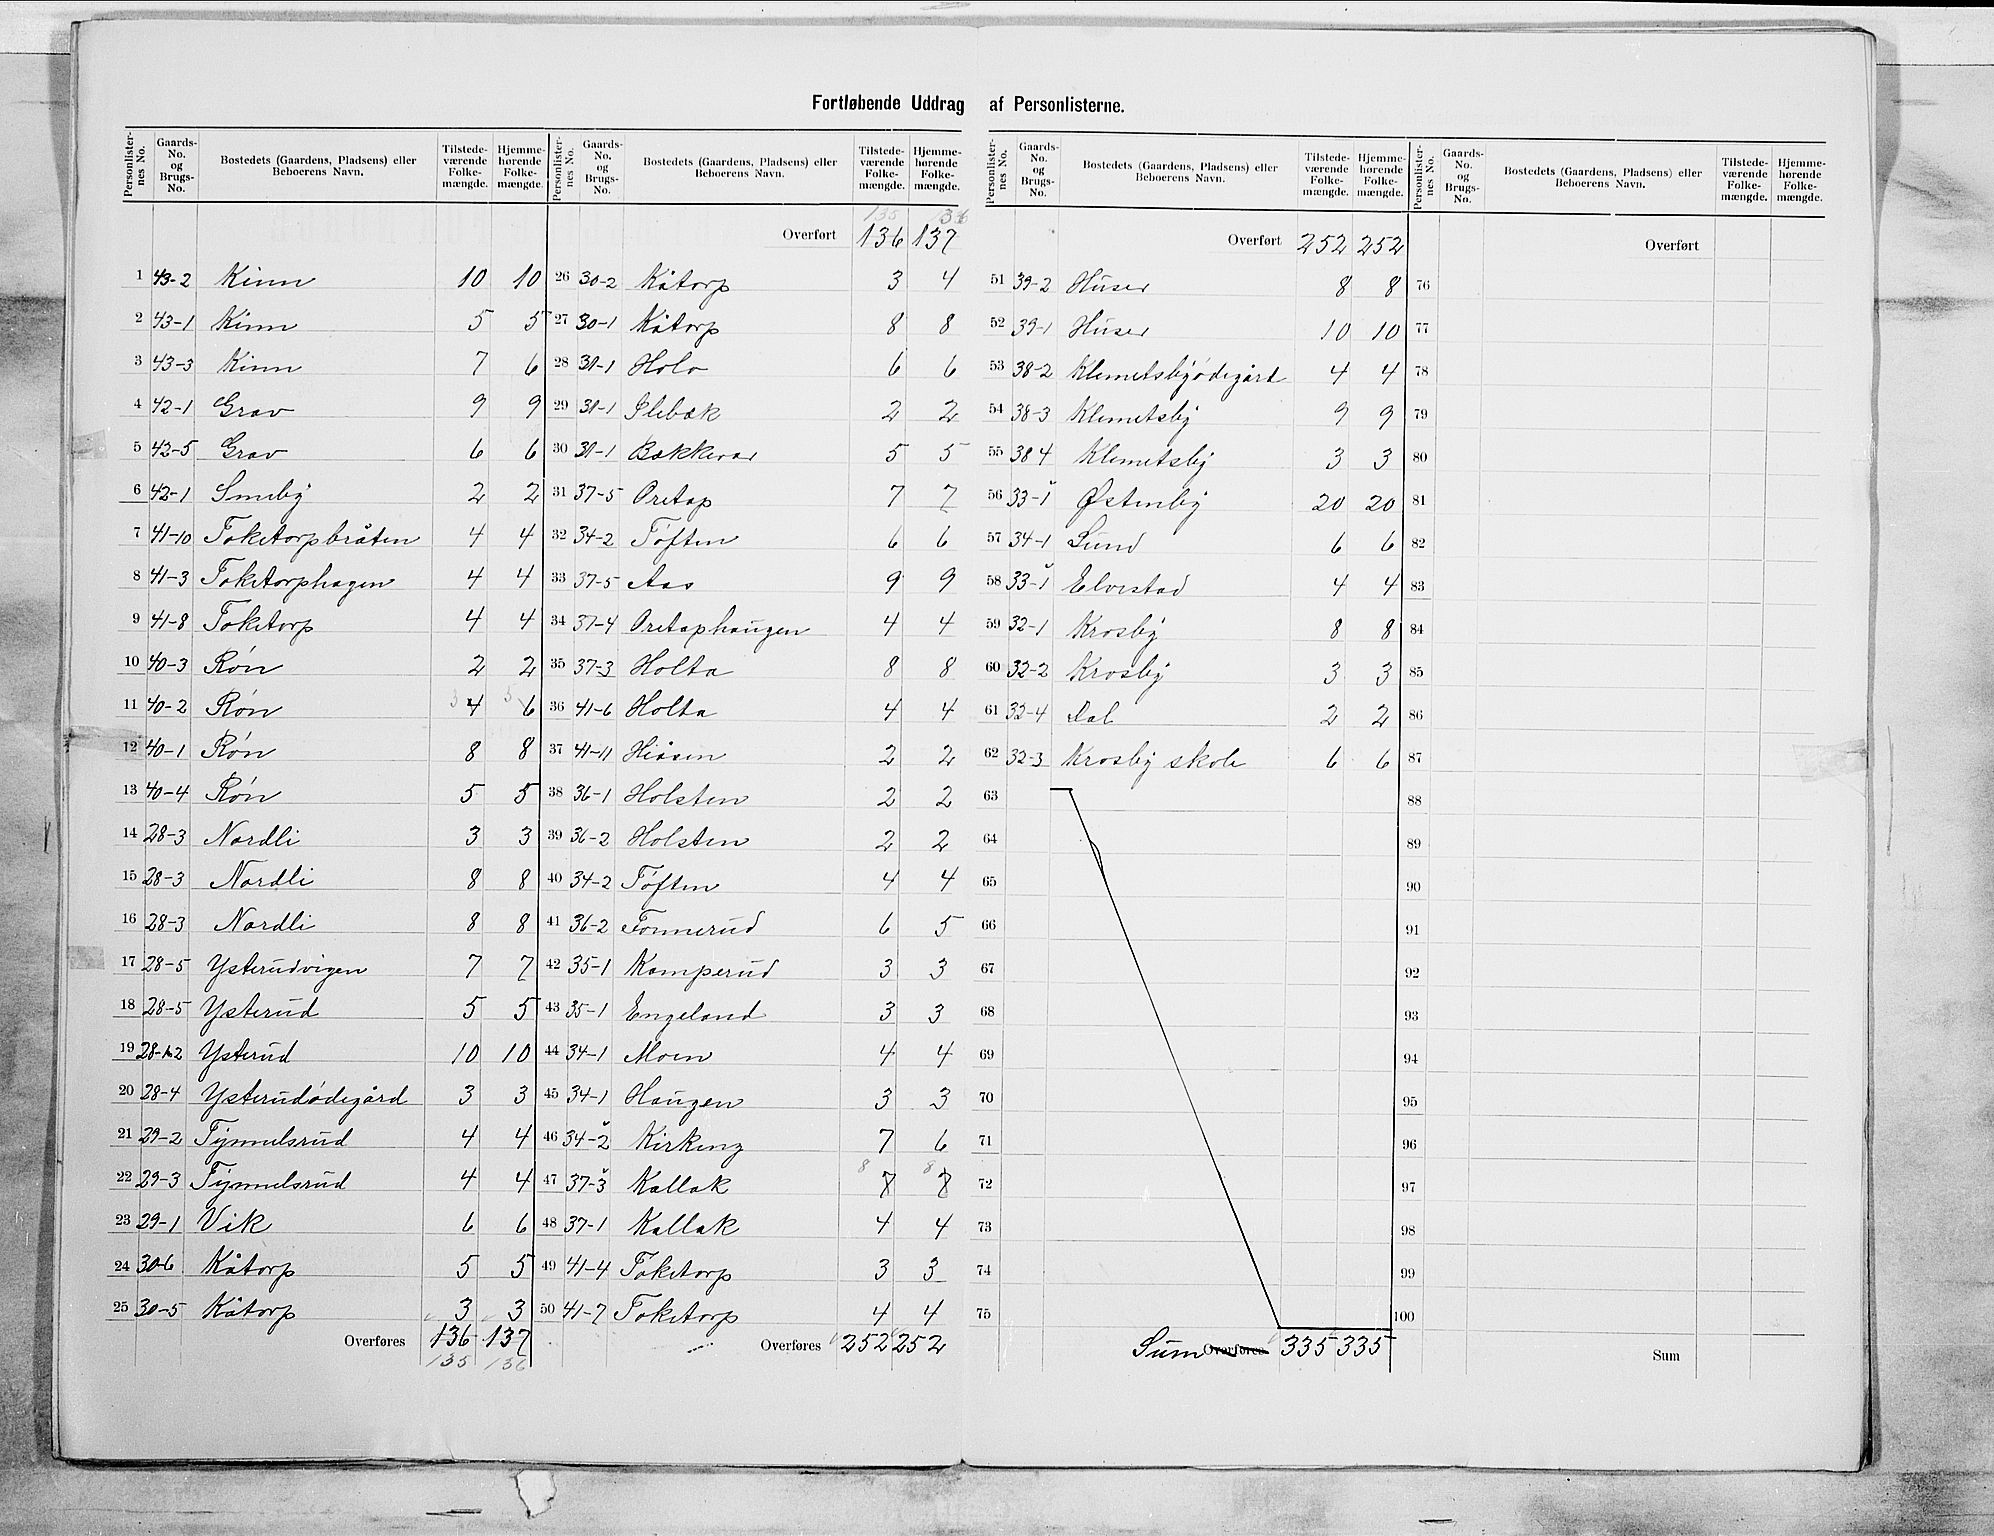 Fortløbende Uddrag af Personlisterne.
Personlister-nes No. Gaards-No. og Brugs-No. Bostedets (Gaardens, Pladsens) eller Beboerens Navn. Tilstede-værende Folke-mængde. Hjemme-hørende Folke-mængde.
1 43-2 Kinn 10 10
2 43-1 Kinn 5 5
3 43-3 Kinn 7 6
4 42-1 Grav 9 9
5 42-5 Grav 6 6
6 42-1 Smeby 2 2
7 41-10 Toketorpbråten 4 4
8 41-3 Toketorphagen 4 4
9 41-8 Toketorp 4 4
10 40-3 Røn 2 2
11 40-2 Røn 3 4 5 6
12 40-1 Røn 8 8
13 40-4 Røn 5 5
14 28-3 Nordli 3 3
15 28-3 Nordli 8 8
16 28-3 Nordli 8 8
17 28-5 Ysterudvigen 7 7
18 28-5 Ysterud 5 5
19 28-2 Ysterud 10 10
20 28-4 Ysterudødegård 3 3
21 29-2 Tymmelsrud 4 4
22 29-3 Tymmelsrud 4 4
23 29-1 Vik 6 6
24 30-6 Kåtorp 5 5
25 30-5 Kåtorp 3 3
Overføres 136 137
135 136
Personlister-nes No. Gaards-No. og Brugs-No. Bostedets (Gaardens, Pladsens) eller Beboerens Navn. Tilstede-værende Folke-mængde. Hjemme-hørende Folke-mængde.
135 136
Overført 136 137
26 30-2 Kåtorp 3 4
27 30-1 Kåtorp 8 8
28 31-1 Holo 6 6
29 31-1 Slebæk 2 2
30 31-1 Bækkevar 5 5
31 37-5 Oretop 7 7
32 34-2 Tøften 6 6
33 37-5 Aas 9 9
34 37-4 Oretophaugen 4 4
35 37-3 Holta 8 8
36 41-6 Holta 4 4
37 41-11 Hiåsen 2 2
38 36-1 Holsten 2 2
39 36-2 Holsten 2 2
40 34-2 Tøften 4 4
41 36-2 Tonnerud 6 5
42 35-1 Komperud 3 3
43 35-1 Engeland 3 3
44 34-1 Moen 4 4
45 34-1 Haugen 3 3
46 34-2 Kirkeng 7 6
47 37-3 Kallak 8 7 8 7
48 37-1 Kallak 4 4
49 41-4 Toketorp 3 3
50 41-7 Toketorp 4 4
Overføres 252 252
Personlister-nes No. Gaards-No. og Brugs-No. Bostedets (Gaardens, Pladsens) eller Beboerens Navn. Tilstede-værende Folke-mængde. Hjemme-hørende Folke-mængde.
Overført 252 252
51 39-2 Huser 8 8
52 39-1 Huser 10 10
53 38-2 Klemetsbyødegård 4 4
54 38-3 Klemetsby 9 9
55 38 4 Klemetsby 3 3
56 33-1 Østenby 20 20
57 34-1 Lund 6 6
58 33-1 Elvestad 4 4
59 32-1 Krosby 8 8
60 32-2 Krosby 3 3
61 32-4 Dal 2 2
62 32-3 Krosby skole 6 6
63
64
65
66
67
68
69
70
71
72
73
74
75
Sum Overføres 335 335
Personlister-nes No. Gaards-No. og Brugs-No. Bostedets (Gaardens, Pladsens) eller Beboerens Navn. Tilstede-værende Folke-mængde. Hjemme-hørende Folke-mængde.
Overført
76
77
78
79
80
81
82
83
84
85
86
87
88
89
90
91
92
93
94
95
96
97
98
99
100
Sum